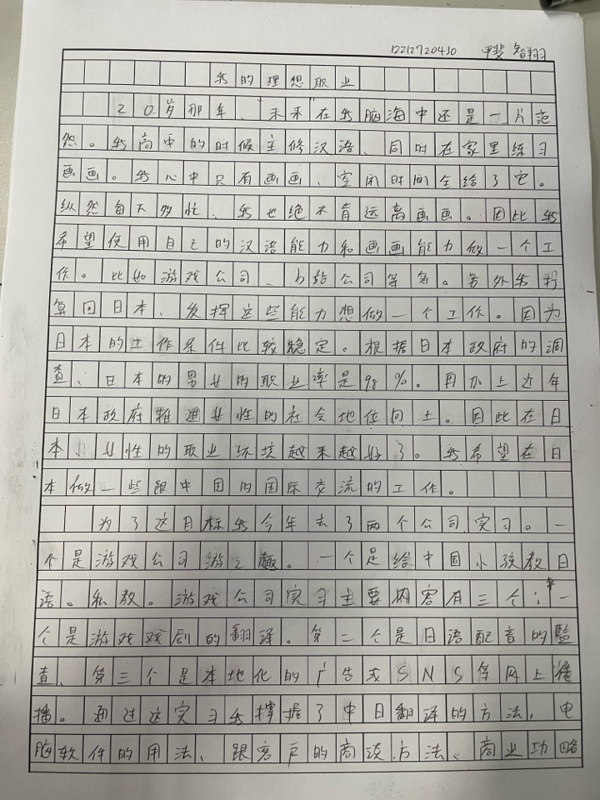 12212720430 甲斐 智翔
我的理想职业
20岁那年、"未来"在我脑海中还是一片茫
然。我高中的时候主修汉语、同时在家里练习
画画。我心中只有画画、空闲时间全给了它。
纵然每天多忙、我也绝不肯远离画画。因此我
希望使用自己的汉语能力和画画能力做一个工
作。比如游戏公司、公司等等。另外我打
算回日本、发挥这些能力想做一个工作。因为
日本的工作条件比较稳定。根据日本政府的调
查、日本的男女的职业率是98%。再加上近年
日本政府推进女性的社会地位向上。因此在日
本女性的职业环境越来越好了。我希望在日
本做一些跟中国的国际交流的工作。
为了这目标我今年去了两个公司实习。一
个是游戏公司游之趣。一个是给中国小孩教日
语。私教。游戏公司实习主要内容有三个：一
个是游戏戏剧的翻译。第二个是日语配音的监
查、第三个是本地化的广告或SNS等网上传
播。通过这实习我掌握了中日翻译的方法、电
脑软件的用法、跟客户的商谈方法、商业功略